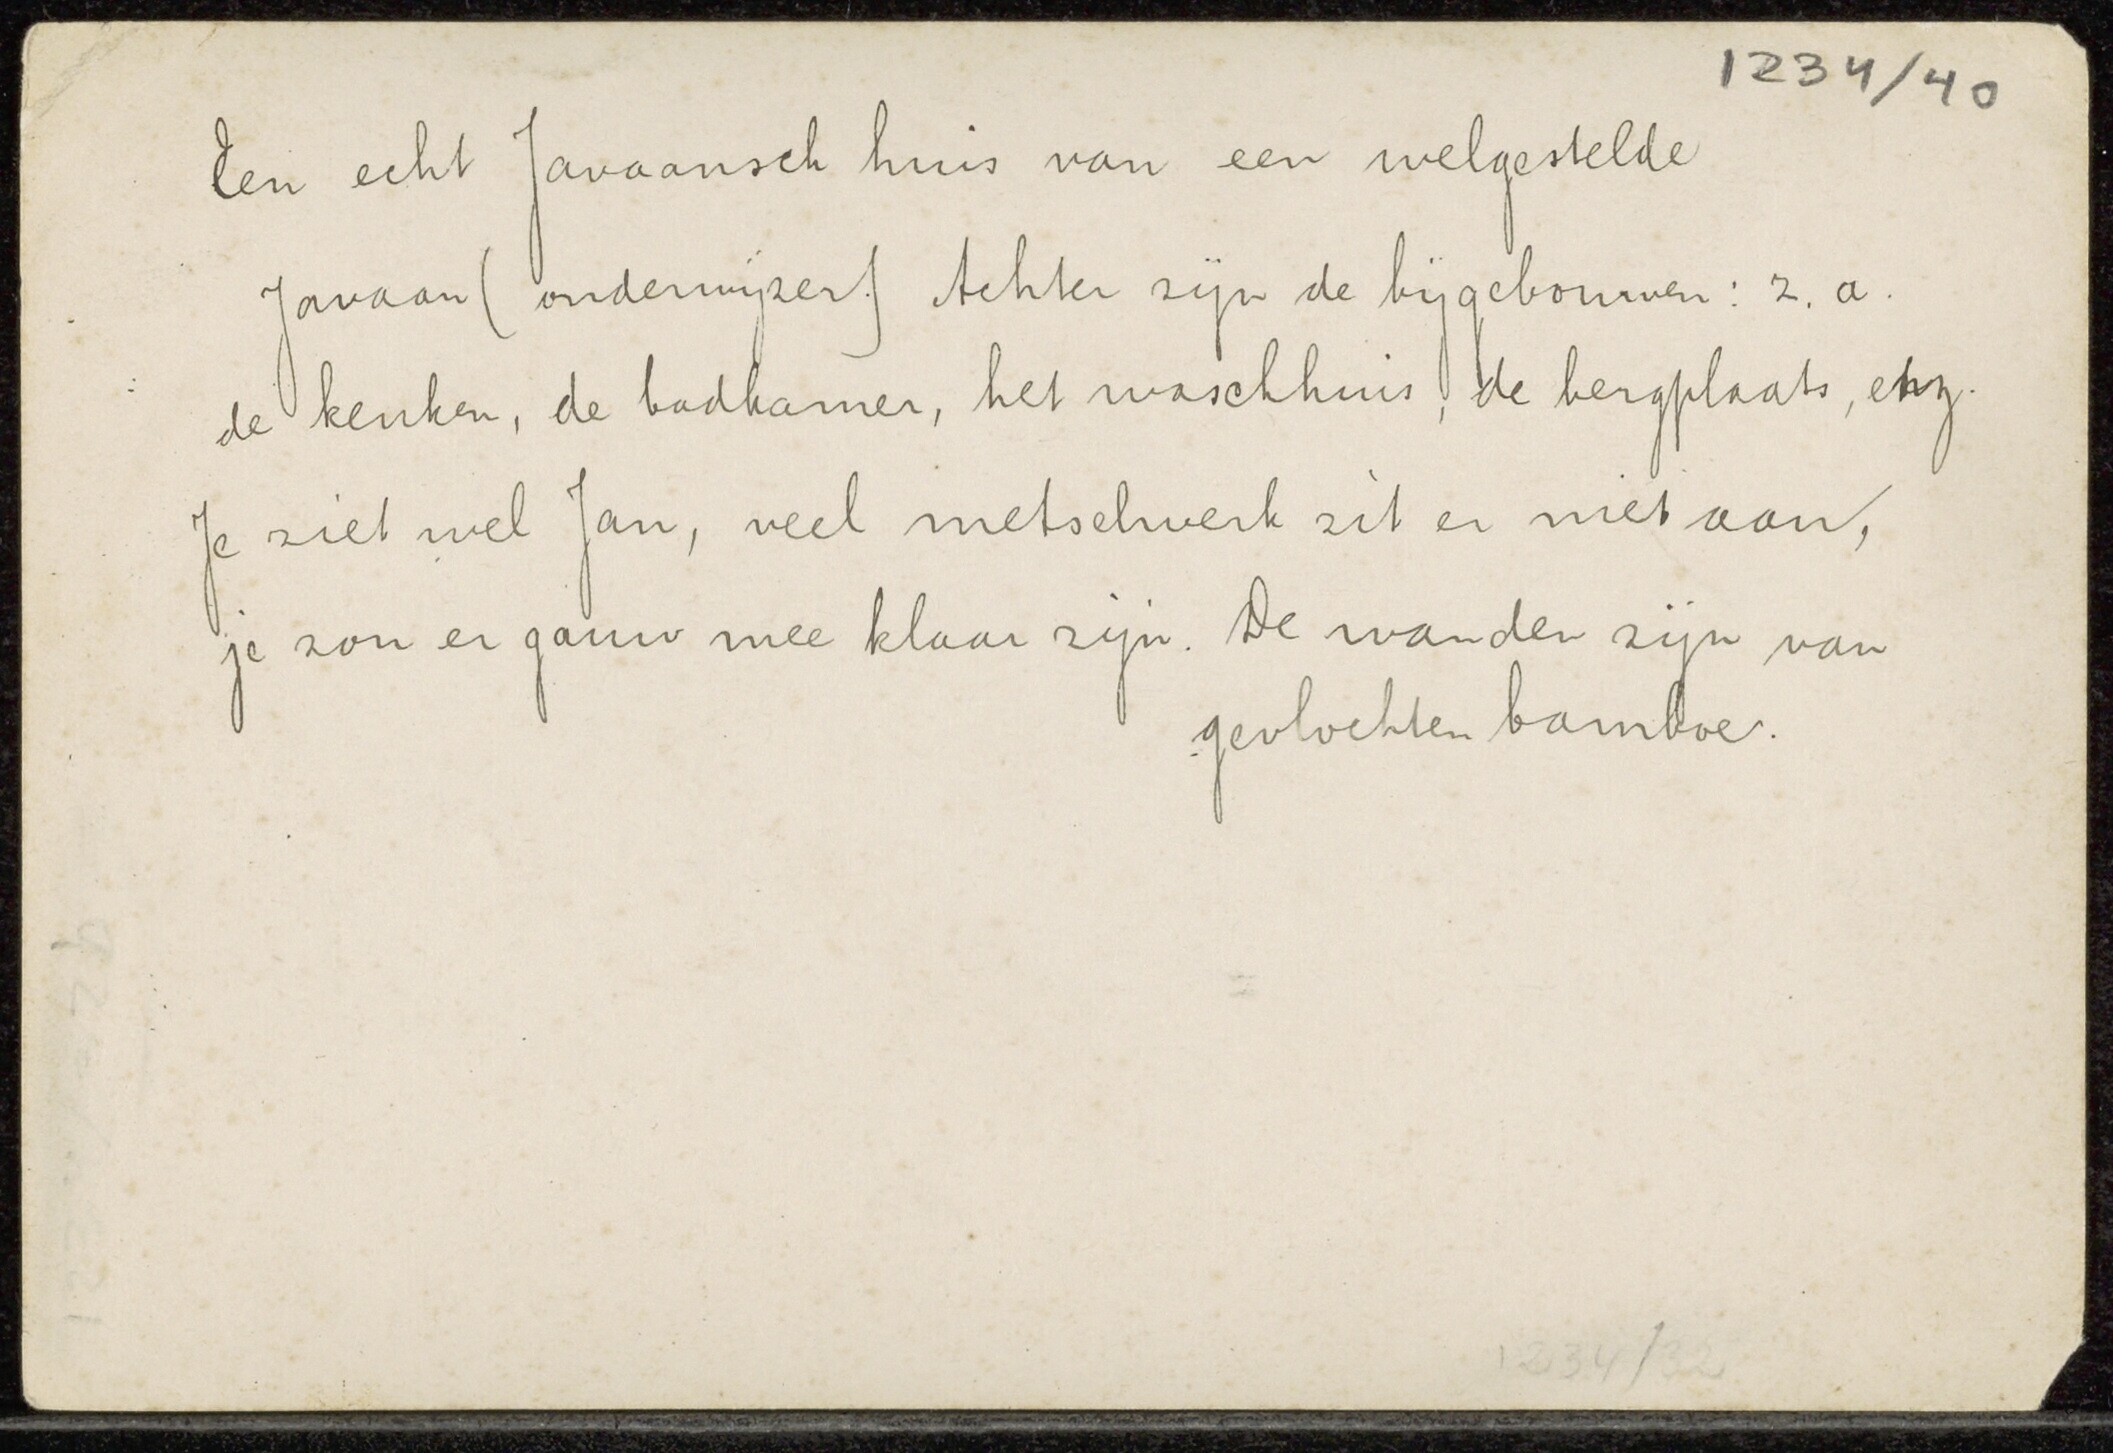 1234/40
Een echt Javaansch huis van een welgestelde
Javaan (onderwijzer.) Achter zijn de bijgebouwen: z. a.
de keuken, de badkamer, het waschhuis, de bergplaats, enz.
Je ziet wel Jan, veel metselwerk zit er niet aan,
je zou er gauw mee klaar zijn. De wanden zijn van
gevlochten bamboe.
1234/32